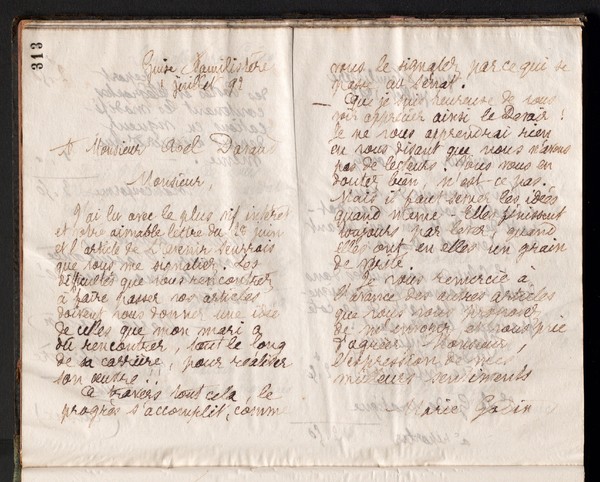 313
Guise Familistère
juillet 92
Monsieur Abel Davaud
Monsieur,
J'ai lu avec le plus vif intérêt
votre aimable lettre du 2 juin
et l'article de l'Avenir
que vous me signalier. Les
difficultés que vous rencontrez
à faire passer vos articles
doivent vous donner une idée
de celles que mon mari a
dû rencontrer, tout le long
de sa carrière, pour réaliser
son œuvre !!
A travers tout cela, le
progrès s'accomplit, comme
vous le signalez par ce qui se
passe au Sénat.
Que je suis heureuse de vous
voir apprécier ainsi le Devoir !
Je ne vous apprendrai rien
en vous disant que nous n'avons
pas de lecteurs. Vous vous en
doutez bien n'est-ce pas.
Mais il faut semer les idées
quand même - Elles finissent
toujours par lever, quand
elles ont en elles un grain
de vérité.
Je vous remercie à
l'avance des autres articles
que vous vous proposez
de m'envoyer et vous prie
d'agréer Monsieur,
l'expression de mes
meilleurs sentiments
Marie Godin